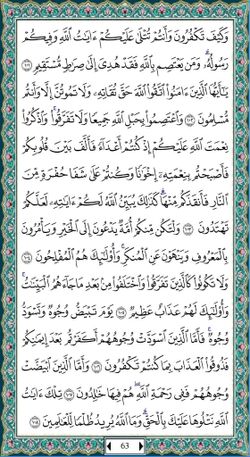 وَكَيْفَ تَكْفُرُونَ وَأَنتُمْ تُتْلَىٰ عَلَيْكُمْ ءَايَٰتُ ٱللَّهِ وَفِيكُمْ
رَسُولُهُۥ ۗ وَمَن يَعْتَصِم بِٱللَّهِ فَقَدْ هُدِىَ إِلَىٰ صِرَٰطٍ مُّسْتَقِيمٍ ١٠١
يَٰٓأَيُّهَا ٱلَّذِينَ ءَامَنُوا۟ ٱتَّقُوا۟ ٱللَّهَ حَقَّ تُقَاتِهِۦ وَلَا تَمُوتُنَّ إِلَّا وَأَنتُم
مُّسْلِمُونَ ١٠٢ وَٱعْتَصِمُوا۟ بِحَبْلِ ٱللَّهِ جَمِيعًا وَلَا تَفَرَّقُوا۟ ۚ وَٱذْكُرُوا۟
نِعْمَتَ ٱللَّهِ عَلَيْكُمْ إِذْ كُنتُمْ أَعْدَآءً فَأَلَّفَ بَيْنَ قُلُوبِكُمْ
فَأَصْبَحْتُم بِنِعْمَتِهِۦٓ إِخْوَٰنًا وَكُنتُمْ عَلَىٰ شَفَا حُفْرَةٍ مِّنَ
ٱلنَّارِ فَأَنقَذَكُم مِّنْهَا ۗ كَذَٰلِكَ يُبَيِّنُ ٱللَّهُ لَكُمْ ءَايَٰتِهِۦ لَعَلَّكُمْ
تَهْتَدُونَ ١٠٣ وَلْتَكُن مِّنكُمْ أُمَّةٌ يَدْعُونَ إِلَى ٱلْخَيْرِ وَيَأْمُرُونَ
بِٱلْمَعْرُوفِ وَيَنْهَوْنَ عَنِ ٱلْمُنكَرِ ۚ وَأُو۟لَٰٓئِكَ هُمُ ٱلْمُفْلِحُونَ ١٠٤
وَلَا تَكُونُوا۟ كَٱلَّذِينَ تَفَرَّقُوا۟ وَٱخْتَلَفُوا۟ مِنۢ بَعْدِ مَا جَآءَهُمُ ٱلْبَيِّنَٰتُ ۚ
وَأُو۟لَٰٓئِكَ لَهُمْ عَذَابٌ عَظِيمٌ ١٠٥ يَوْمَ تَبْيَضُّ وُجُوهٌ وَتَسْوَدُّ
وُجُوهٌ ۚ فَأَمَّا ٱلَّذِينَ ٱسْوَدَّتْ وُجُوهُهُمْ أَكَفَرْتُم بَعْدَ إِيمَٰنِكُمْ
فَذُوقُوا۟ ٱلْعَذَابَ بِمَا كُنتُمْ تَكْفُرُونَ ١٠٦ وَأَمَّا ٱلَّذِينَ ٱبْيَضَّتْ
وُجُوهُهُمْ فَفِى رَحْمَةِ ٱللَّهِ هُمْ فِيهَا خَٰلِدُونَ ١٠٧ تِلْكَ ءَايَٰتُ
ٱللَّهِ نَتْلُوهَا عَلَيْكَ بِٱلْحَقِّ ۗ وَمَا ٱللَّهُ يُرِيدُ ظُلْمًا لِّلْعَٰلَمِينَ ١٠٨
63